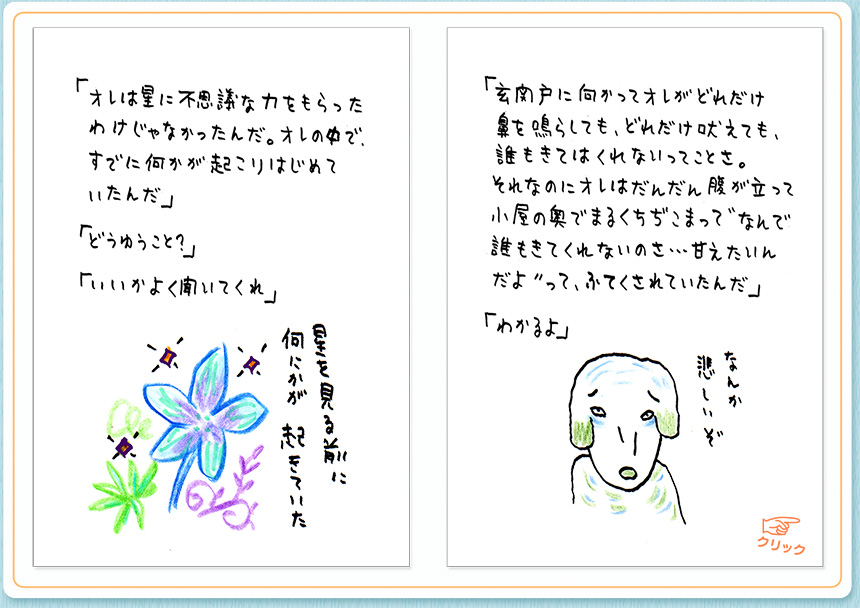 「オレは星に不思議な力をもらった
わけじゃなかったんだ。オレの中で、
すでに何かが起こりはじめて
いたんだ」
「どうゆうこと?」
「いいかよく聞いてくれ」
星を見る前に
何にかが起きていた
「玄関戸に向かってオレがどれだけ
鼻を鳴らしても、どれだけ吠えても、
誰もきてはくれないってことさ。
それなのにオレはだんだん腹が立って
小屋の奥でまるくちぢこまって〝なんで
誰もきてくれないのさ…甘えたいん
だよ〟って、ふてくされていたんだ」
「わかるよ」
なんか
悲しいぞ
クリック